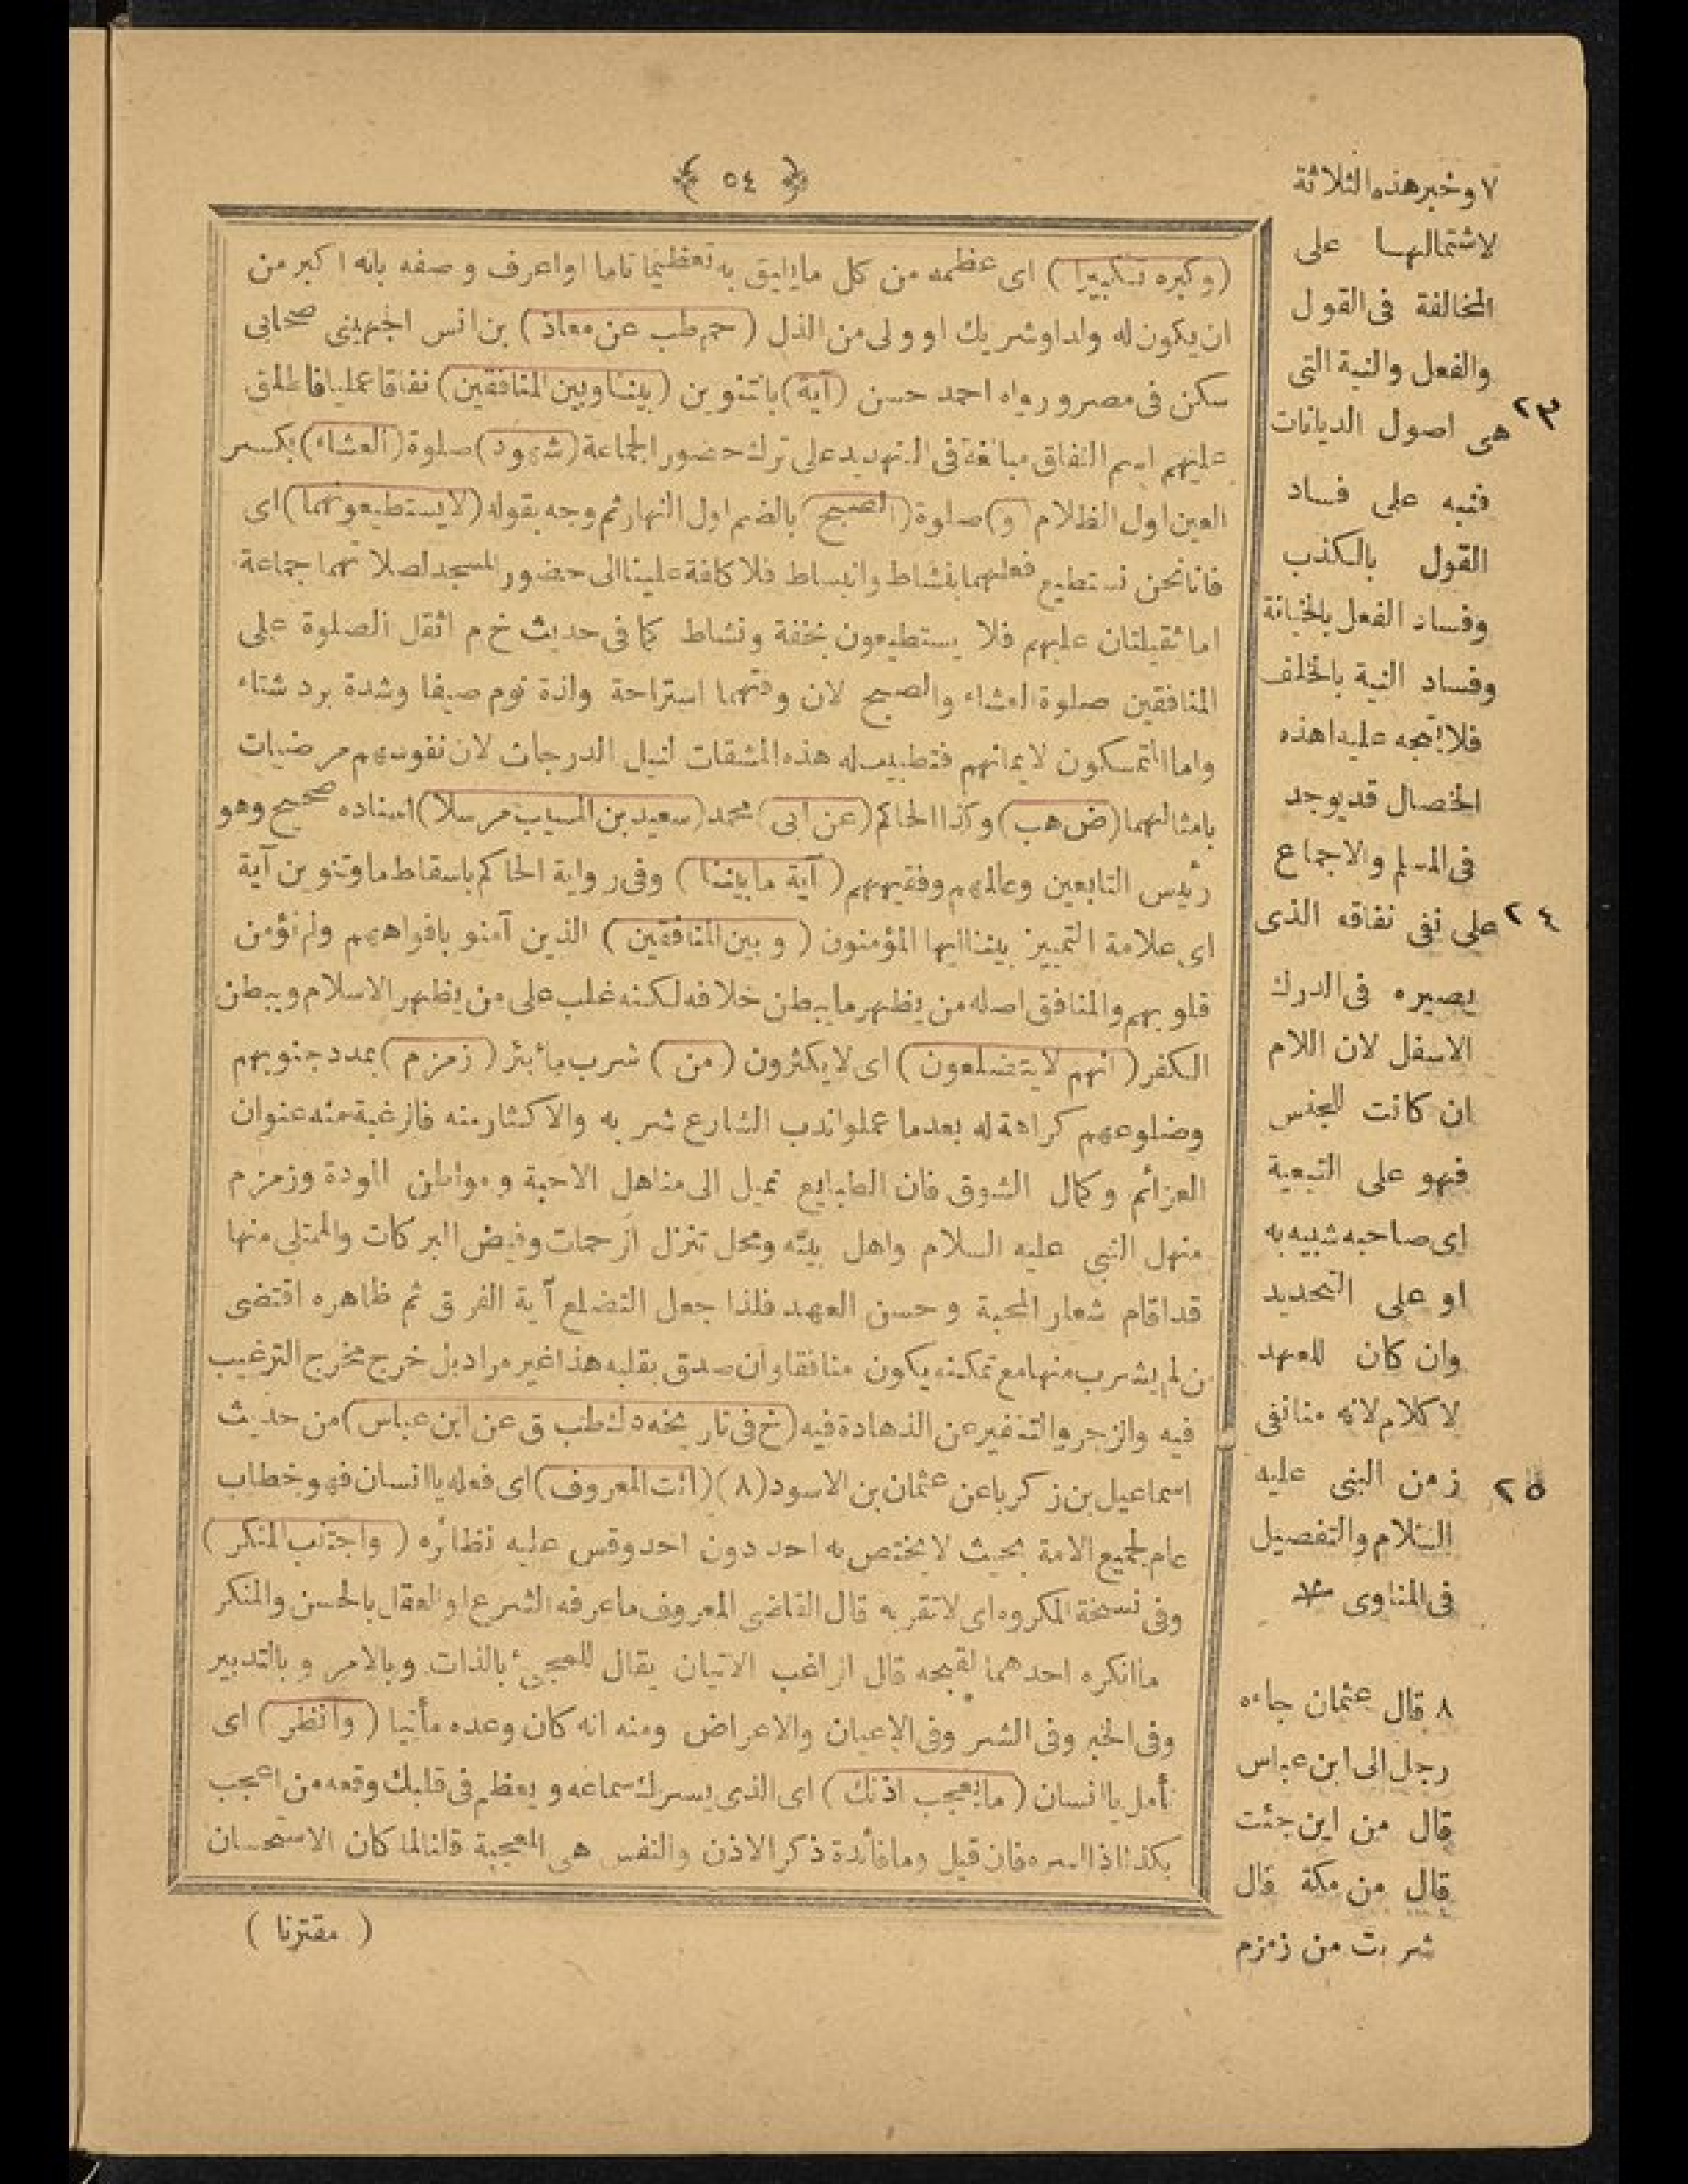 ﴿ ٥٤ ﴾
(وكبره تكبيرا) اى عظمه من كل ما يليق به تعظيما تاما او اعرف وصفه بانه اكبر من
ان يكون له ولد او شريك او ولى من الذل (حم طب عن معاذ) بن انس الجهينى صحابى
سكن فى مصر ورواه احمد حسن (آية) بالتنوين (بيننا وبين المنافقين) نفاقا عمليا فاطلق
عليهم اسم النفاق مبالغة فى التهديد على ترك حضور الجماعة (شهود) صلوة (العشاء) بكسر
العين اول الظلام (و) صلوة (الصبح) بالضم اول النهار ثم وجه بقوله (لا يستطيعونهما) اى
فانا نحن نستطيع فعلهما بنشاط وانبساط فلا كلفة علينا الى حضور المسجد لصلاتهما جماعة
اما ثقيلتان عليهم فلا يستطيعون بخفة ونشاط كما فى حديث خ م اثقل الصلوة على
المنافقين صلوة العشاء والصبح لان وقتهما استراحة ولذة نوم صيفا وشدة برد شتاء
واما المتمسكون لايمانهم فتطيب له هذه المشقات لنيل الدرجات لان نفوسهم مرضيات
بامثالهما (ض هب) وكذا الحاكم (عن ابى) محمد (سعيد بن المسيب مرسلا) اسناده صحيح وهو
رئيس التابعين وعالمهم وفقيههم (آية ما بيننا) وفى رواية الحاكم باسقاط ما وتنوين آية
اى علامة التمييز بيننا ايها المؤمنون (وبين المنافقين) الذين آمنو بافواههم ولم تؤمن
قلوبهم والمنافق اصله من يظهر ما يبطن خلافه لكنه غلب على من يظهر الاسلام ويبطن
الكفر (انهم لا يتضلعون) اى لا يكثرون (من) شرب ماء بئر (زمزم) بمدد جنوبهم
وضلوعهم كراهة له بعدما عملوا ندب الشارع شربه والاكثار منه فالرغبة منه عنوان
الغرائم وكمال الشوق فان الطبايع تميل الى مناهل الاحبة ومواطن المودة وزمزم
منهل النبى عليه السلام واهل بيته ومحل تنزل الرحمات وفيض البركات والممتلى منها
قد اقام شعار المحبة وحسن العهد فلذا جعل التضلع آية الفرق ثم ظاهره اقتضى
من لم يشرب منها مع تمكنه يكون منافقا وان صدق بقلبه هذا غير مراد بل خرج مخرج الترغيب
فيه والزجر والتنفير عن الذهادة فيه (خ فى تاريخه ه ك طب ق عن ابن عباس) من حديث
اسماعيل بن زكريا عن عثمان بن الاسود (٨) (ائت المعروف) اى فعله يا انسان فهو خطاب
عام لجميع الامة بحيث لا يختص به احد دون احد وقس عليه نظائره (واجتنب المنكر)
وفى نسخة المكروه اى لا تقربه قال القاضى المعروف ما عرفه الشرع او العقل بالحسن والمنكر
ما انكره احدهما لقبحه قال الراغب الاتيان يقال للمجىء بالذات وبالامر وبالتدبير
وفى الخير وفى الشر وفى الاعيان والاعراض ومنه انه كان وعده مأتيا (وانظر) اى
تأمل يا انسان (ما يعجب اذنك) اى الذى يسرك سماعه ويعظم فى قلبك وقعه من اعجب
بكذا اذا سره فان قيل وما فائدة ذكر الاذن والنفس هى المعجبة قلنا لما كان الاستحسان
( مقترنا )
٧ وخبر هذه الثلاثة
لاشتمالها على
المخالفة فى القول
والفعل والنية التى
٢٣ هى اصول الديانات
فنبه على فساد
القول بالكذب
وفساد الفعل بالخيانة
وفساد النية بالخلف
فلا يتجه عليه اهذه
الخصال قد يوجد
فى المسلم والاجماع
٢٤ على نفى نفاقه الذى
يصيره فى الدرك
الاسفل لان اللام
ان كانت للجنس
فهو على التبعية
اى صاحبه شبيه به
او على التحديد
وان كان للعهد
لا كلام لانه منافقى
٢٥ زمن النبى عليه
السلام والتفصيل
فى المناوى
٨ قال عثمان جاءه
رجل الى ابن عباس
قال من اين جئت
قال من مكة قال
شربت من زمزم